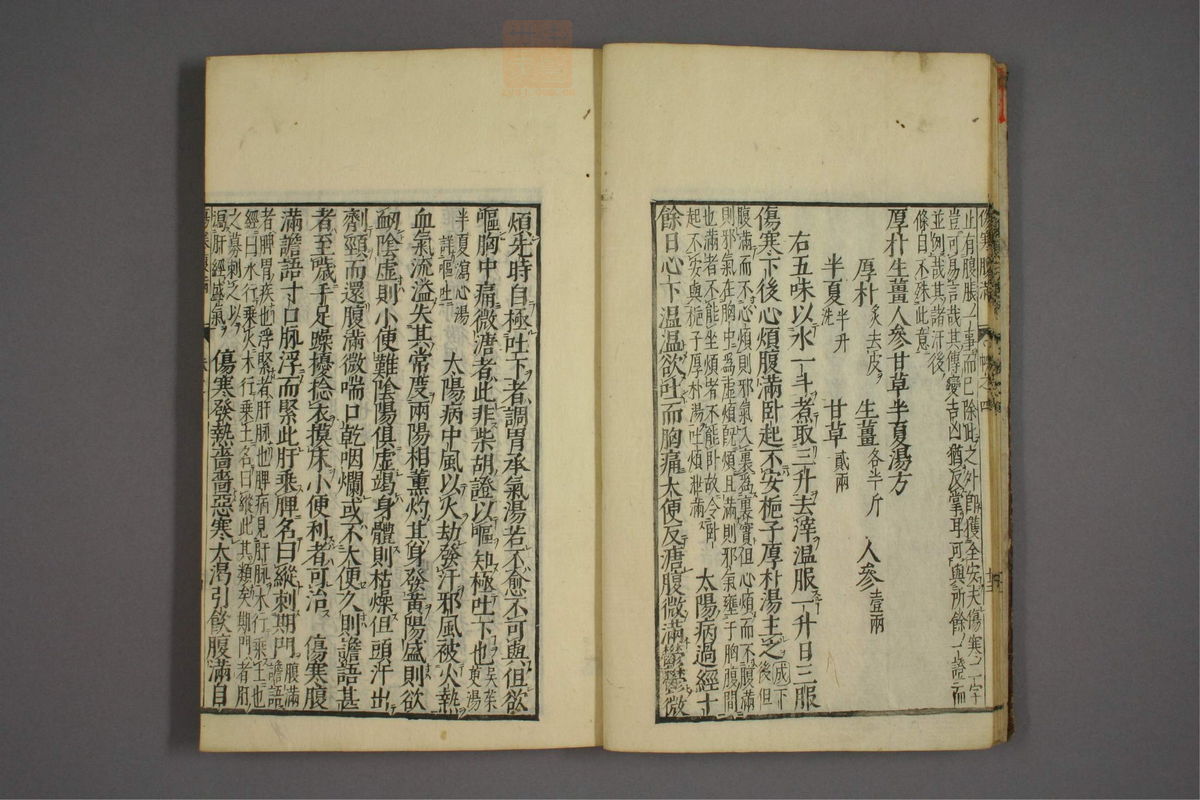 傷寒腹滿
止有腹脹一事而已除此之外即獲全安夫傷寒二字
豈可易言哉其傳變吉凶猶反掌耳可與所餘一證而
並匊哉其諸汗後
條目不殊此意
厚朴生薑人參甘草半夏湯方
厚朴炙去皮 生薑各半斤 人參壹兩
半夏洗半升 甘草貳兩
右五味以水一斗煮取三升去滓溫服一升日三服
傷寒下後心煩腹滿卧起不安梔子厚朴湯主之成下後但
腹滿而不心煩則邪氣入裏為裏實但心煩而不腹滿
則邪氣在胸中為虛煩既煩且滿則邪氣壅于胸腹間
也滿者不能坐煩者不能卧故令卧
起不安與梔子厚朴湯吐煩泄滿 太陽病過經十
餘日心下溫溫欲吐而胸痛大便反溏腹微滿鬱鬱微
煩先時自極吐下者調胃承氣湯若不愈不可與但欲
嘔胸中痛微溏者此非柴胡證以嘔知極吐下也
半夏瀉心湯
詳嘔吐 太陽病中風以火劫發汗邪風被火熱
血氣流溢失其常度兩陽相薰灼其身發黃陽盛則欲
衂陰虛則小便難陰陽俱虛竭身體則枯燥但頭汗出
劑頸而還腹滿微喘口乾咽爛或不大便久則譫語甚
者至噦手足躁擾捻衣摸床小便利者可治 傷寒腹
滿譫語寸口脉浮而緊此肝乘脾名曰縱刺期門腹滿譫語
者脾胃疾也浮緊者肝脉也脾病見肝脉木行乘土也
經曰水行乘火木行乘土名曰縱此其類矣期門者肝
之募刺之以
瀉肝經盛氣 傷寒發熱嗇嗇惡寒大渴引飲腹滿自